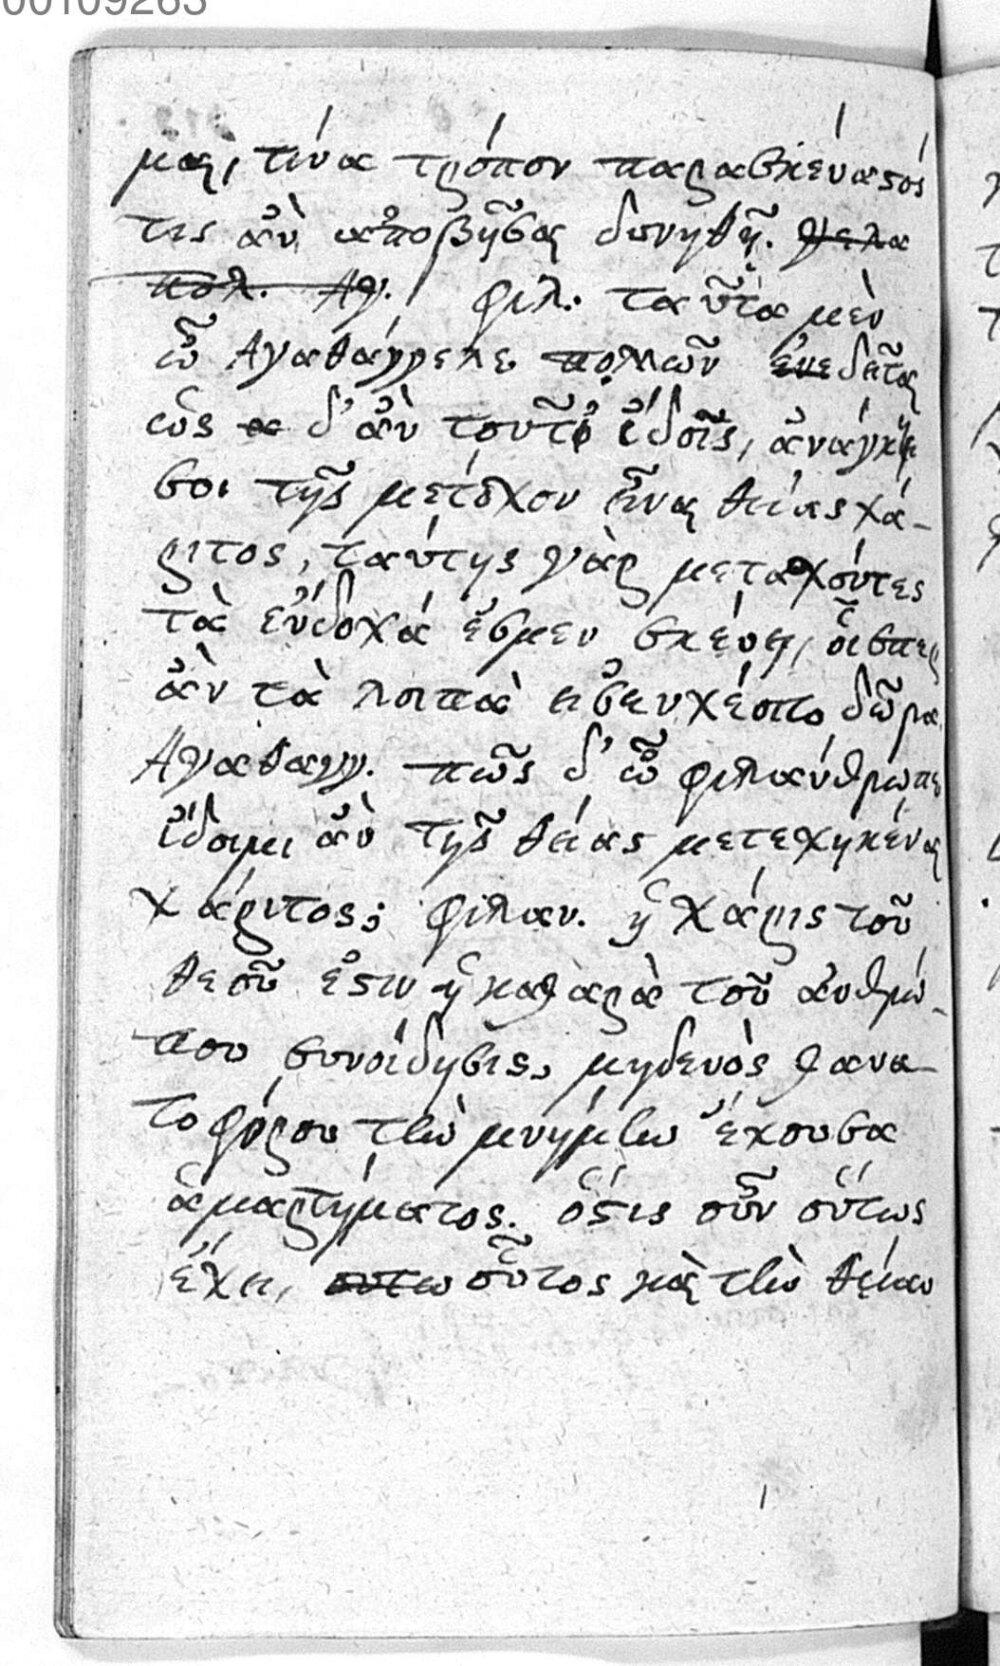 00109263
μαι, τίνα τρόπον παρασκευαστός
τις ἂν ἀποβῆσαι δυνηθῇ. γελα
πολ. Αγ. φιλ. ταῦτα μὲν
ὦ Αγαθάγγελε πολλῶν ἐνεδεῖται
ὡς δ' ἂν τοῦτο εἰδοῖς, ἀνάγκη
σοι τῆς μέτοχον εἶναι θείας χά-
ριτος, ταύτης γὰρ μετασχόντες
τὰ εὔδοχά ἐσμεν σκεύη, οἷσπερ
ἂν τὰ λοιπὰ εἰσενχέοιτο δῶρα.
Αγαθαγγ. πῶς δ' ὦ φιλάνθρωπε
εἰδοιμι ἂν τῆς θείας μετεχηκέναι
χάριτος; φιλαν. ἡ χάρις τοῦ
θεοῦ ἐστιν ἡ καθαρὰ τοῦ ἀνθρώ-
που συνοίδησις, μηδενὸς θανα-
τοφόρου τὴν μνήμην ἔχουσα
ἁμαρτήματος. ὅστις οὖν οὕτως
ἔχει, ουτω οὗτος καὶ τὴν θείαν